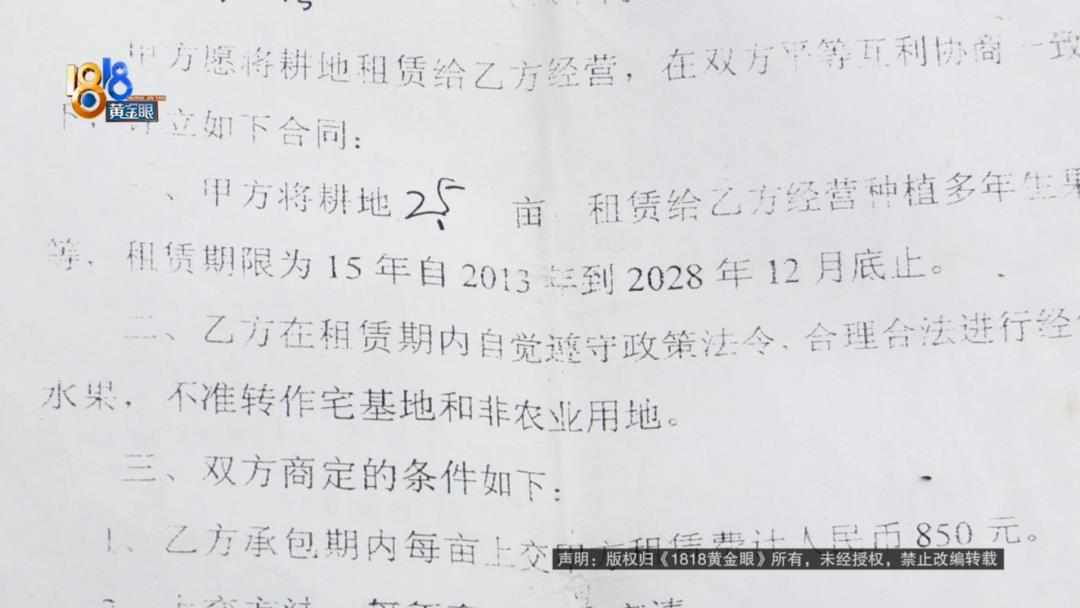 甲方愿将耕地租赁给乙方经营，在双方平等互利协商一致
下，订立如下合同：
、甲方将耕地 25 亩 租赁给乙方经营种植多年生果
等，租赁期限为 15 年自 2013 年到 2028 年 12 月底止。
二、乙方在租赁期内自觉遵守政策法令、合理合法进行经
水果，不准转作宅基地和非农业用地。
三、双方商定的条件如下：
1、乙方承包期内每亩上交甲方租赁费计人民币 850 元。
1818
黄金眼
声明：版权归《1818黄金眼》所有，未经授权，禁止改编转载